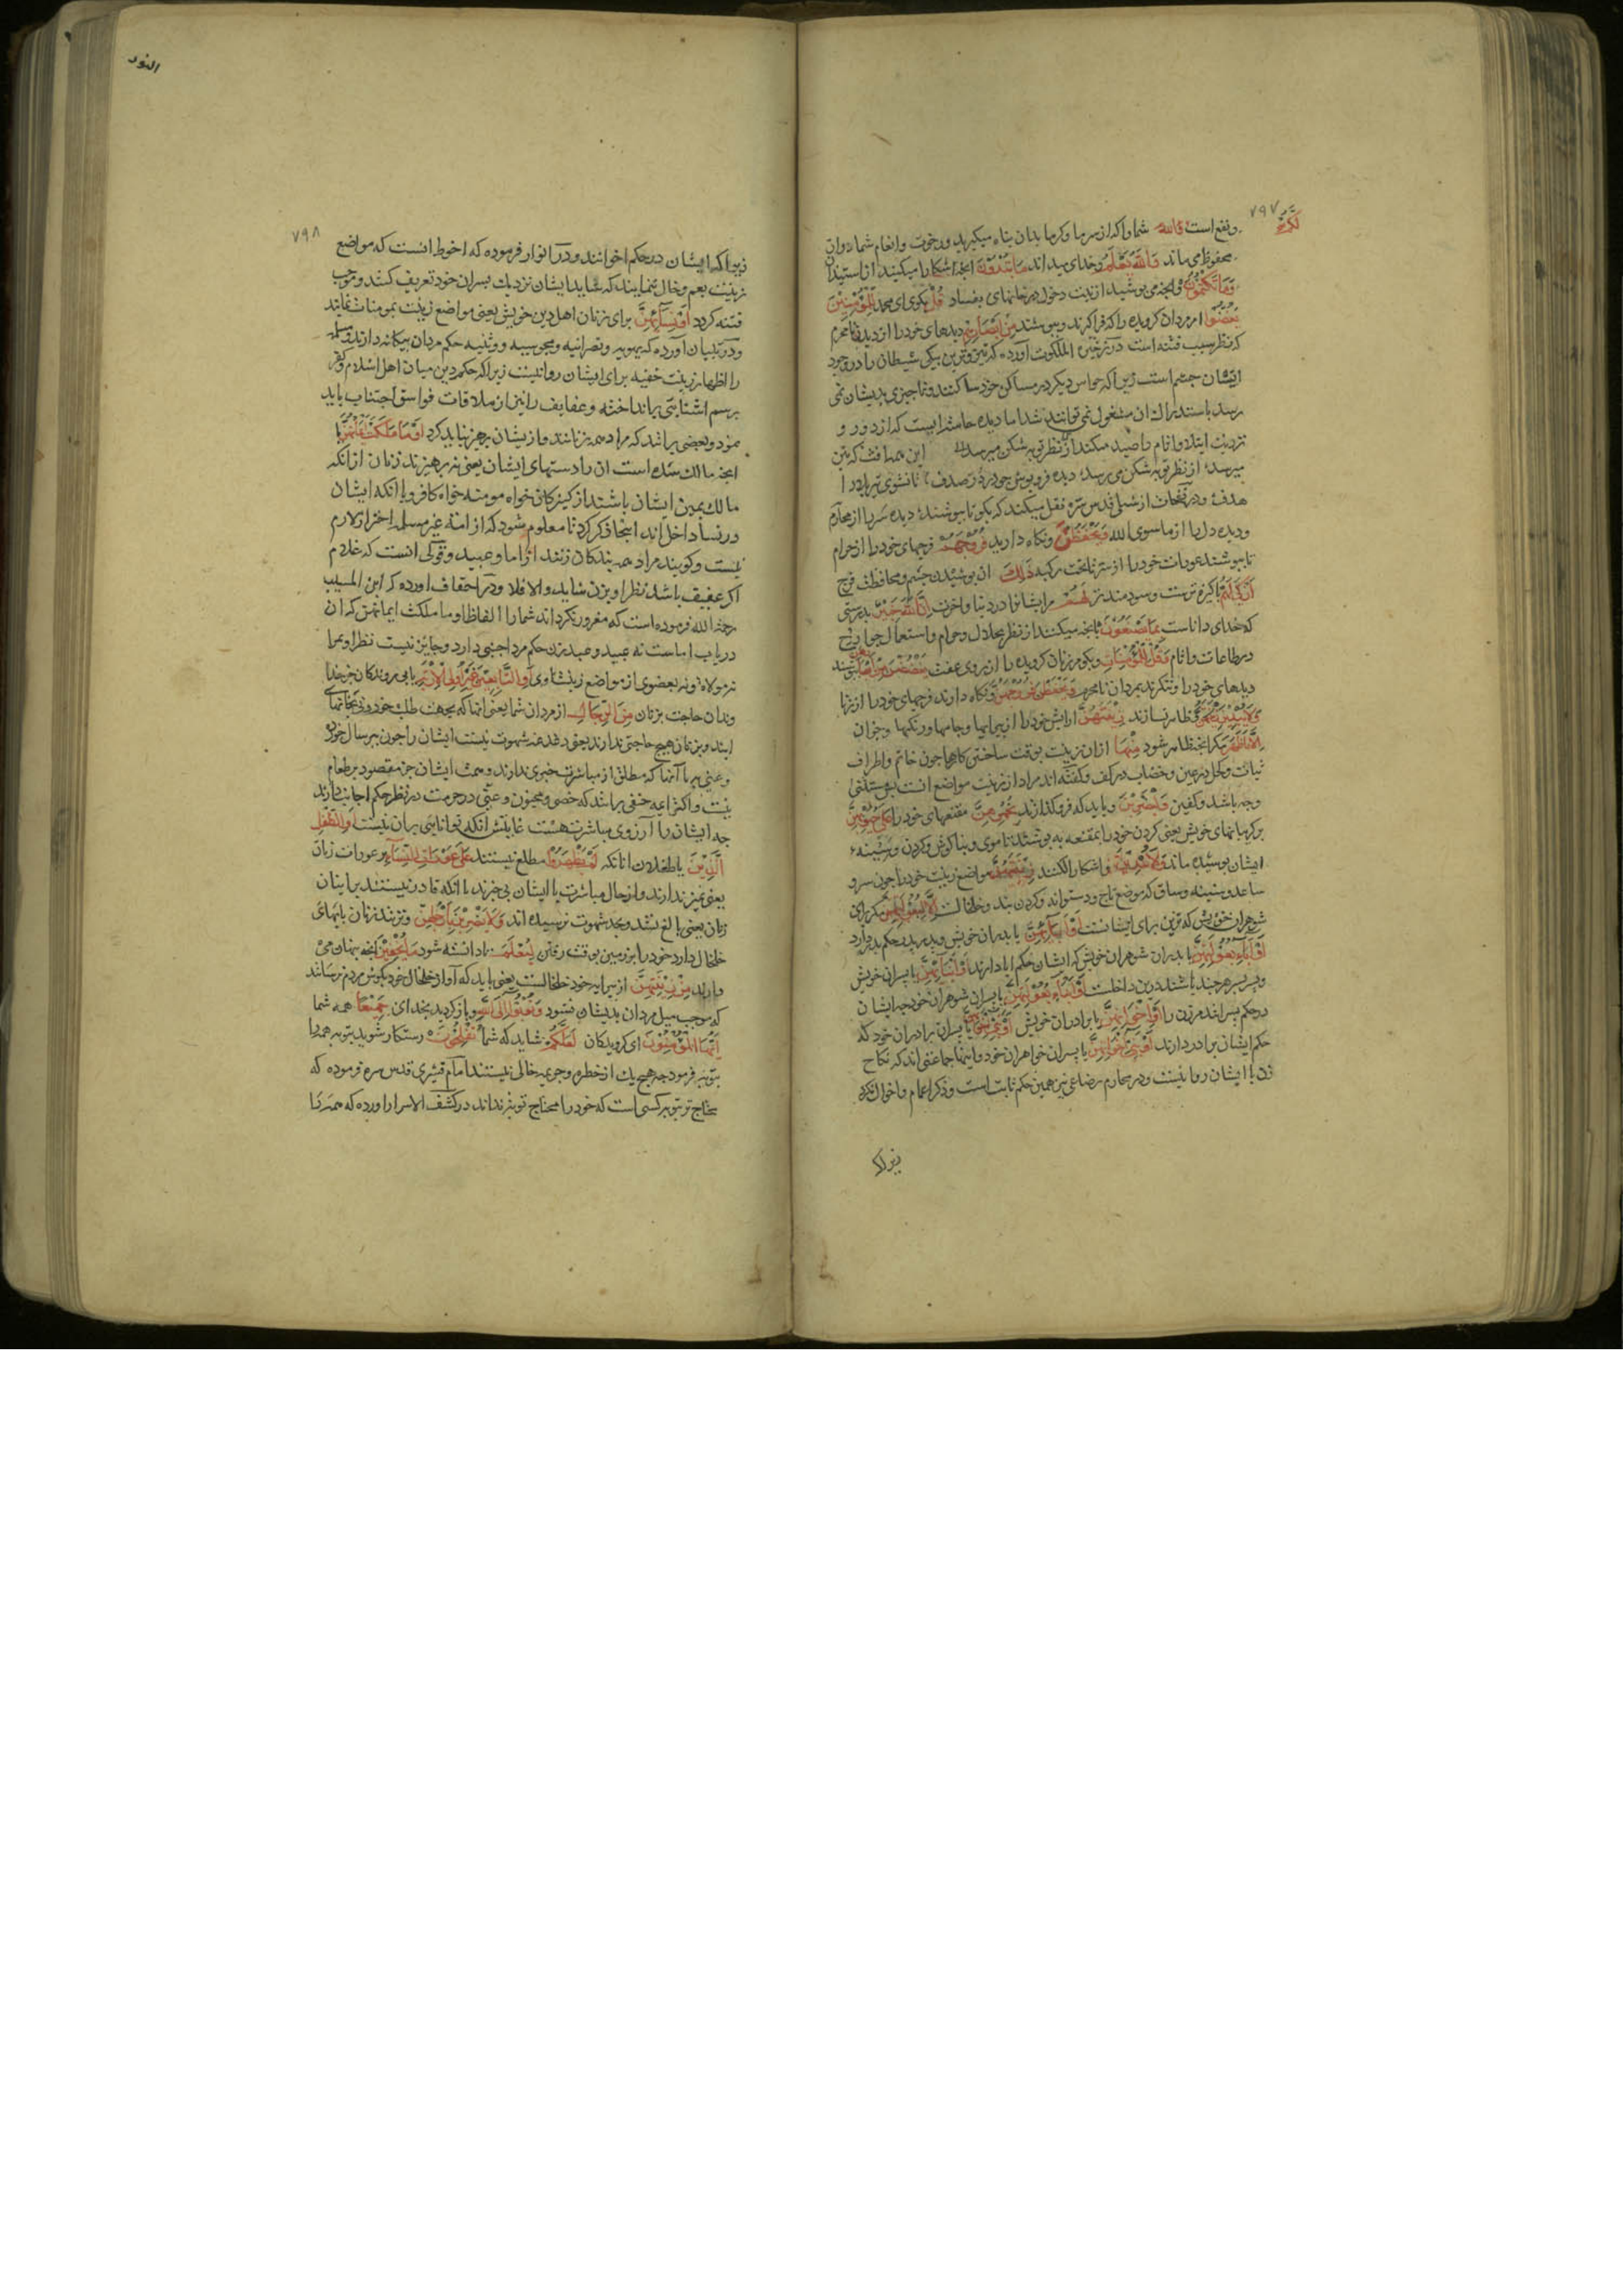 ۷۹۷
لَكُمْ
ونفع است شما را كه از سرما وكرما بدان پناه ميكيريد ورخوت وانعام شما دران
محفوظ مى ماند وَاللهُ يَعْلَمُ وخداى ميداند مَا تُبْدُونَ انچه اشكارا ميكنيد از استيذان
وَمَا تَكْتُمُونَ وانچه مى پوشيد از نيت دخول در خانهاى بفساد قُلْ بكوى اى محمد لِلْمُؤْمِنِينَ
يَغُضُّوا مر مردان كرويده را كه فراكيرند وبپوشند مِنْ اَبْصَارِهِمْ ديدهاى خود را از ديد نامحرم
كه نظر سبب فتنه است در ذخيرة الملكوت آورده كه تيزترين پيكى شيطان را در وجود
ايشان چشم است زيرا كه حواس ديكر در مساكن خود ساكنند وتا چيزى بديشان نمى
رسد باستدراك ان مشغول نمى توانند شد اما ديده حاسه ايست كه از دور و
نزديك ابتلا واثام را صيد ميكند
هدف؛ ودر نفحات از شبلى قدس سره نقل ميكند كه بكو تا بپوشند ديده سر را از محارم
وديده دل را از ما سوى الله وَيَحْفَظُوا ونكاه داريد فُرُوجَهُمْ فرجهاى خود را از حرام
تا بپوشند عورات خود را ذٰلِكَ ان پوشيدن چشم ومحافظت فرج
اَزْكٰى لَهُمْ پاكيزه ترست وسودمندتر مر ايشانرا در دنيا واخرت اِنَّ اللهَ خَبِيرٌ بدرستى
كه خداى داناست بِمَا يَصْنَعُونَ بانچه ميكنند از نظر بحلال وحرام واستعمال جوارح
در طاعات واثام وَقُلْ لِلْمُؤْمِنَاتِ وبكو مر زنان كرويده را از روى عفت يَغْضُضْنَ مِنْ اَبْصَارِهِنَّ بپوشند
ديدهاى خود را وننكرند بمردان نامحرم وَيَحْفَظْنَ فُرُوجَهُنَّ ونكاه دارند فرجهاى خود را از زنا
وَلَا يُبْدِينَ وظاهر نسازند زِينَتَهُنَّ ارايش خود را از پيرايها وجامها ورنكها وجز ان
اِلَّا مَا ظَهَرَ مكر انچه ظاهر شود مِنْهَا ازان زينت بوقت ساختن كارها چون خاتم واطراف
ثياب وكحل در عين وخضاب در كف وكفته اند مراد از زينت مواضع انست
وجه باشد وكفين وَلْيَضْرِبْنَ وبايد كه فروكذارند بِخُمُرِهِنَّ مقنعهاى خود را عَلٰى جُيُوبِهِنَّ
بر كريبانهاى خويش يعنى كردن خود را بمقنعه بپوشند تا موى وبناكوش وكردن وسينهٔ
ايشان پوشيده ماند وَلَا يُبْدِينَ واشكارا نكنند زِينَتَهُنَّ مواضع زينت خود را چون سر و
ساعد وسينه وساق كه موضع تاج ودستوانه وكردن بند وخلخالست اِلَّا لِبُعُولَتِهِنَّ مكر براى
شوهران خويش كه تزيين براى ايشانست اَوْ اٰبَائِهِنَّ يا پدران خويش وپدر پدر حكم پدر دارد
اَوْ اٰبَاءِ بُعُولَتِهِنَّ يا پدران شوهران خويش كه ايشان حكم ابا دارند اَوْ اَبْنَائِهِنَّ يا پسران خويش
وپسر پسر هر چند باشند درين داخلست اَوْ اَبْنَاءِ بُعُولَتِهِنَّ يا پسران شوهران خود چه ايشان
در حكم پسرانند مر زن را اَوْ اِخْوَانِهِنَّ يا برادران خويش اَوْ بَنِى اِخْوَانِهِنَّ يا پسران برادران خود كه
حكم ايشان برادر دارند اَوْ بَنِى اَخَوَاتِهِنَّ يا پسران خواهران خود واينها جماعتى اند كه نكاح
زن با ايشان روا نيست ودر محارم رضاعى نيز همين حكم ثابت است وذكر اعمام واخوال نكرد
زيرا كه
النور
۷۹۸
زيرا كه ايشان در حكم اخوانند ودر انوار فرموده كه احوط انست كه مواضع
زينت بعم وخال ننمايند كه شايد ايشان نزديك پسران خود تعريف كنند وموجب
فتنه كردد اَوْ نِسَائِهِنَّ براى زنان اهل دين خويش يعنى مواضع زينت بمومنات نمايند
ودر تبيان آورده كه يهوديه ونصرانيه ومجوسيه ووثنيه حكم مردان بيكانه دارند ومسلمه
را اظهار زينت خفيه براى ايشان روا نيست زيرا كه حكم دين ميان اهل اسلام وكفر
رسم اشنايى برانداخته وعفايف را نيز از ملاقات فواسق اجتناب بايد
نمود وبعضى برانند كه مراد همه زنانند واز يشان پرهيز نبايد كرد اَوْ مَا مَلَكَتْ اَيْمَانُهُنَّ يا
انچه مالك شده است ان را دستهاى ايشان يعنى نپرهيزند زنان از انكه
مالك يمين ايشان باشند از كنيزكان خواه مومنه خواه كافره با انكه ايشان
در نسا داخل اند اينجا ذكر كرد تا معلوم شود كه از امة غير مسلمه احتراز لازم
نيست وكويند مراد همه بندكان زنند از اما وعبيد وقولى انست كه غلام
اكر عفيف باشد نظر او بزن شايد والا فلا ودر احقاف اورده كه ابن المسيب
رحمة الله فرموده است كه مغرور نكرداند شما را الفاظ او ما ملكت ايمانهن كه ان
در باب اماست نه عبيد وعبد زن حكم مرد اجنبى دارد وجايز نيست نظر او بموى
سر مولاة؛ ونه بعضوى از مواضع زينت اوى اَوِ التَّابِعِينَ غَيْرِ اُولِى الْاِرْبَةِ يا پى روندكان جز خداوندان
وندان حاجت بزنان مِنَ الرِّجَالِ از مردان شما يعنى انها كه بجهت طلب خوردنى بخانها
ايند وبزنان هيچ حاجتى ندارند يعنى دغدغه شهوت نيست ايشان را چون پير سال خورده
وعنين يا آنها كه مطلق از مباشرت خبرى ندارند وهمت ايشان جز مقصور بر طعام
نيست واكثر ايمه حنفى برانند كه خصى ومجبوب وعنين در حرمت در نظر حكم اجانب دارند
چه ايشان را آرزوى مباشرت هست غايتش انكه توانايى بران نيست اَوِ الطِّفْلِ
الَّذِينَ يا طفلان انانكه لَمْ يَظْهَرُوا مطلع نيستند عَلٰى عَوْرَاتِ النِّسَاءِ بر عورات زنان
يعنى تميز ندارند واز حال مباشرت با ايشان بى خبرند يا انكه قادر نيستند بر اتيان
زنان يعنى بالغ نشده وبحد شهوت نرسيده اند وَلَا يَضْرِبْنَ بِاَرْجُلِهِنَّ ونزنند زنان پايهاى
خلخال دارد خود را بر زمين بوقت رفتن لِيُعْلَمَ تا دانسته شود مَا يُخْفِينَ انچه پنهان مى
دارند مِنْ زِينَتِهِنَّ از پيرايه خود خلخالست يعنى بايد كه آواز خلخال خود بكوش مردم نرسانند
كه موجب ميل مردان بديشان نشود وَتُوبُوا اِلَى اللهِ وباز كرديد بخداى جَمِيعًا همه شما
اَيُّهَا الْمُؤْمِنُونَ اى كرويدكان لَعَلَّكُمْ شايد كه شما تُفْلِحُونَ رستكار شويد بتوبه همه را
بتوبه فرمود چه هيچ يك از خطره وجريمه خالى نيستند امام قشيرى قدس سره فرموده كه
محتاج تر بتوبه كسى است كه خود را محتاج توبه نداند در كشف الاسرار اورده كه همه را